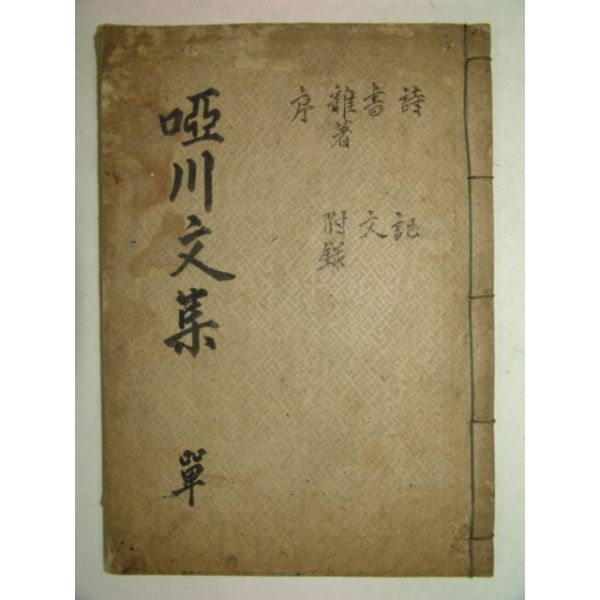 啞川文集
單
詩
書
雜著
序
記
文
附錄